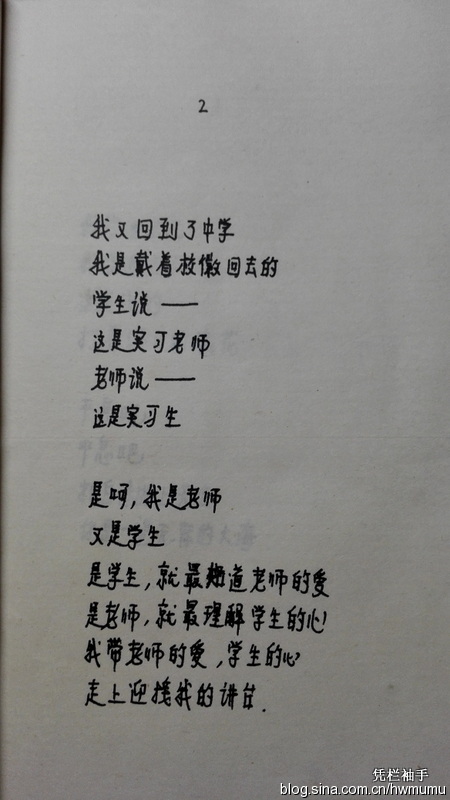 2
我又回到了中学
我是戴着校徽回去的
学生说——
这是实习老师
老师说——
这是实习生
是呵,我是老师
又是学生
是学生,就最知道老师的爱
是老师,就最理解学生的心
我带老师的爱,学生的心
走上迎接我的讲台.
凭栏袖手
blog.sina.com.cn/hwmumu